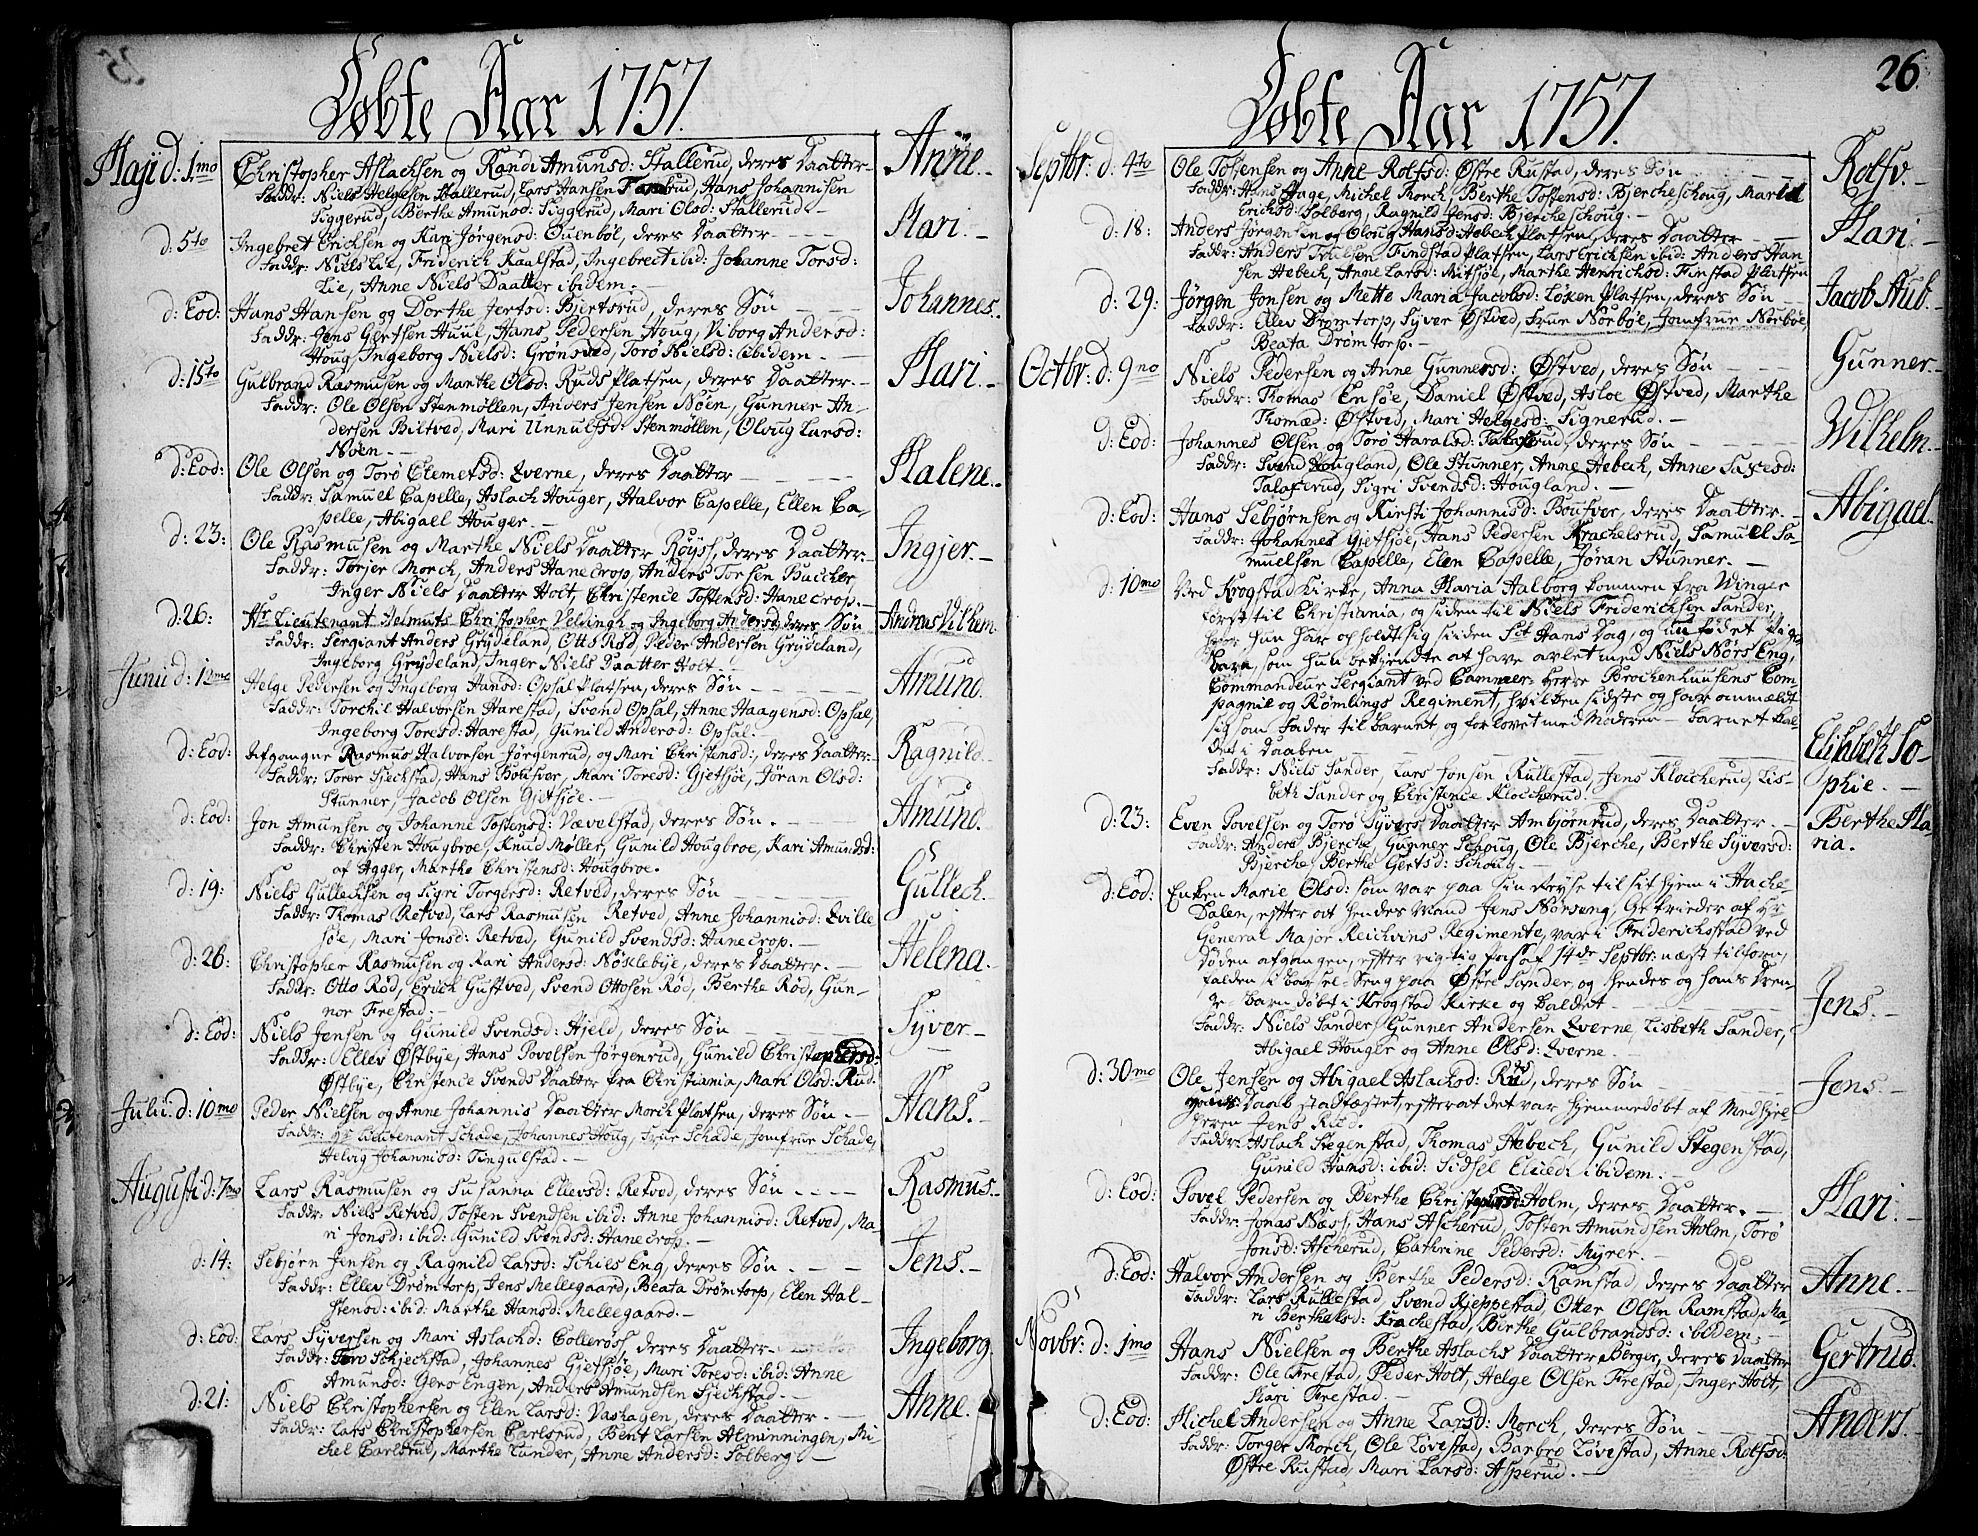 Døbte Aar 1757.
Maji d: 1mo Christopher Aslachsen og Randi Amunsd: Stallerud, deres Daatter Anne.
Faddr: Niels Helgesen Stallerud, Lars Hansen Hans Johannisen
Siggerud, Berthe Amunsd: Siggerud, Mari Olsd: Stallerud.
d: 5to Ingebret Erichsen og Kari Jørgensd: Quenbøl, deres Daatter Mari.
Faddr: Niels Lie, Friderich Kaalstad, Ingebrect ibid: Johanne Torsd:
Lie, Anne Niels Daatter ibidem.
d: Eod: Hans Hansen og Dorthe Jertsd: Bjertsrud, deres Søn Johannes.
Faddr: Jens Gertsen Huul, Hans Pedersen Houg, Viborg Andersd:
Houg, Ingeborg Nielsd: Grønsved, Torø Nielsd: ibidem.
d: 15to Gulbrand Rasmusen og Marthe Olsd: Ruds Platsen, deres Daatter Mari.
Faddr: Ole Olsen Stenmøllen, Anders Jensen Nøen, Gunner An-
dersen Biltved, Mari Unnulfsd: Stenmøllen, Oloug Larsd:
Nøen.
d: Eod: Ole Olsen og Torø Clemetsd: Qverne, deres Daatter Malene.
Faddr: Samuel Capelle, Aslach Houger, Halvor Capelle, Ellen Ca-
pelle, Abigael Houger.
d: 23: Ole Rasmusen og Marthe Niels Daatter Røys, deres Daatter Ingjer.
Faddr: Torjer Morch, Anders Hanecrop, Anders Torsen Buccher
Inger Niels Daatter Holt, Christence Tostensd: Hanecrop.
d: 26: Hr Lieutenant Helmuts Christopher Veldingh og Ingeborg Andersd deres Søn Andreas Vilhem.
Faddr: Sergiant Anders Grydeland, Otto Rød, Peder Andersen Grydeland,
Ingeborg Grydeland, Inger Niels Daatter Holt.
Junii d: 12mo Helge Pedersen og Ingeborg Hansd: Opsal Platsen, deres Søn Amund.
Faddr: Torchil Halvorsen Harestad, Svend Opsal, Anne Haagensd: Opsal,
Ingeborg Toresd: Harestad, Gunild Andersd: Opsal.
d: Eod: Afgangne Rasmus Halvorsen Jørgenrud, og Mari Christensd:, deres Daatter Ragnild.
Faddr: Torer Sjechstad, Hans Bousver, Mari Toresd: Gjetsjøe, Jøran Olsd:
Stunner, Jacob Olsen Gjetsjøe.
d: Eod: Jon Amunsen og Johanne Tostensd: Vævelstad, deres Søn. Amund.
Faddr: Christen Hougbroe, Knud Møller, Gunild Hougbroe, Kari Amundsd:
af Agger, Marthe Christensd: Hougbroe.
d: 19: Niels Gullechsen og Sigri Torgersd: Retved, deres Søn Gullech.
Faddr: Thomas Retved, Lars Rasmusen Retved, Anne Johannisd: Qville
søe, Mari Jonsd: Retved, Gunild Svendsd: Hanecrop.
d: 26: Christopher Rasmusen og Kari Andersd: Nøsclebye, deres Daatter. Helena.
Faddr: Otto Rød, Erich Gustved, Svend Ottosen Rød, Berthe Rød, Gun-
nor Frestad.
d: Eod: Niels Jensen og Gunild Svendsd: Hjeld, deres Søn Syver.
Faddr: Ellev Østbye, Hans Povelsen Jørgenrud, Gunild Christophersd:
Østbye, Christence Svends Daatter fra Christiania, Mari Olsd: Rud.
Julii. d: 10mo Peder Nielsen og Anne Johannis Daatter Morch Platsen, deres Søn. Hans.
Faddr: Hr Lieutenant Schade, Johannes Houg, Frue Schade, Jomfrue Schade,
Helvig Johannisd: Tingulstad.
Augusti d: 7mo Lars Rasmusen og Susanna Ellevsd: Retved, deres Søn Rasmus.
Faddr: Niels Retved, Tosten Svendsen ibid: Anne Johannisd: Retved, Ma-
ri Jonsd: ibid: Gunild Svendsd: Hanecrop.
d: 14: Sebjørn Jensen og Ragnild Larsd: Schies Eng, deres Søn Jens.
Faddr: Ellev Drømtorp, Jens Mellegaard, Beata Drømtorp, Elen Hal-
stensd: ibid: Marthe Hansd: Mellegaard.
d: Eod: Lars Syversen og Mari Aslachd: Collerøs, deres Daatter. Ingeborg.
Faddr: Toro Schjechstad, Johannes Gjetsjøe, Mari Toresd: ibid: Anne
Amunsd: Gers Engen, Anders Amundsen Sjechstad.
d: 21: Niels Christophersen og Elen Larsd: Vashagen, deres Daatter. Anne.
Faddr: Lars Christophersen Carlsrud, Bent Larsen Alminningen, Mi-
chel Carlsrud, Marthe Lunder, Anne Andersd: Solberg.
26.
Døbte Aar 1757.
Septbr: d: 4to Ole Tostensen og Anne Rolfsd: Østre Rustad, deres Søn Rolfv.
Faddr: Hans Hage, Michel Morch, Berthe Tostensd: Bjercheschoug, Mari
Erichsd: Solberg, Ragnild Jensd: Bjercheschoug.
d: 18: Anders Jørgensen og Oloug Hansd: Hebech Platsen, deres Daatter Mari.
Faddr: Anders Truelsen Findstad Platsen, Lars Erichsen ibid: Anders Han-
sen Hebech, Anne Larsd: Mitsjøe, Marthe Henrichsd: Finstad Platsen
d: 29: Jørgen Jonsen og Mette Maria Jacobsd: Løken Platsen, deres Søn Jacob Stub.
Faddr: Ellev Drømtorp, Syver Østved, Frue Norbøe, Jomfrue Norbøe,
Beata Drømtorp.
Octbr: d: 9no Niels Pedersen og Anne Gunnersd: Østved, deres Søn Gunner.
Faddr: Thomas Ensøe, Daniel Østved, Asloe Østved, Marthe
Thomæ: Østved, Mari Helgesd: Signerud.
d: Eod: Johannes Olsen og Torø Haralsd: Talasrud, deres Søn Wilhelm.
Faddr: Svend Hougland, Ole Stunner, Anne Hebech, Anne Larsd:
Talasterud, Sigri Svendsd: Hougland.
d: Eod: Hans Sebjørnsen og Kirsti Johannisd: Bousver, deres Daatter. Abigael.
Faddr: Johannes Gjetsjøe, Hans Pedersen Krachelsrud, Samuel Sa-
muelsen Capelle, Elen Capelle, Jøran Stunner.
d: 10mo Ved Krogstad Kirke, Anna Maria Aalborg kommen fra Winger
først til Christiania, og siden til Niels Friderichsen Sander,
hvor hun har opholdt sig siden Sct Hans Dag, og nu fødet Pige
barn, som hun bekjendte at have avlet med Niels Nørs Eng,
Commandeur Sergiant ved Cammer-herre Brochenhuusens Com
pagnie og Rømlings Regiment, hvilken sidste og har anmældt
sig som Fader til barnet og forlovet med Moderen - barnet kal-
det i Daaben Elisabeth So-
phie.
Faddr: Niels Sander, Lars Jonsen Rullestad, Jens Kloccherud, Lis-
beth Sander og Christence Kloccherud.
d: 23: Even Povelsen og Torø Syvers Daatter Ambjørnrud, deres Daatter. Berthe Ma
ria.
Faddr: Anders Bjerche, Gunner Scapug, Ole Bjerche, Berthe Syversd:
Bjerche, Berthe Gertsd: Schoug.
d: Eod: Enken Marie Olsd: som var paa sin Reyse til sit hjem i Hache-
Dalen, effter at hendes Mand Jens Nørseng, Gefrieder af Hr
General Major Reichvins Regimente, var i Friderichstad ved
Døden afgangen, effter rigtig Pas af 14de Septbr: næst tilforn,
falden i Barsel-Seng paa Østre Sander, og hendes og hans Dren-
ge-barn døbt i Krogstad Kirke og kaldet Jens.
Faddr: Niels Sander, Gunner Andersen Qverne, Lisbeth Sander,
Abigael Houger og Anne Olsd: Qverne.
d: 30mo Ole Jensen og Abigael Aslachsd: Rud, deres Søn Jens
hands Daab stadfæstet, effter at det var hjemmedøbt af Medhjel-
peren Jens Riud.
Faddr: Aslach Stegenstad, Thomas Hebech, Gunild Stegenstad,
Gunild Hansd: ibid: Sidsel Elied: ibidem.
d: Eod: Povel Pedersen og Berthe Christophersd: Holm, deres Daatter. Mari.
Faddr: Jonas Næss, Hans Ascherud, Tosten Amundsen Holm, Torø
Jonsd: Ascherud, Cathrine Pedersd: Myrer.
d: Eod: Halvor Andersen og Berthe Pedersd: Ramstad, deres Daatter Anne.
Faddr: Lars Rullestad, Svend Kjeppestad, Otter Olsen Ramstad, Ma-
ri Berthelsd: Krachestad, Berthe Gulbrandsd: ibidem.
Novbr: d: 1mo Hans Nielsen og Berthe Aslachs Daatter Berger, deres Daatter Gertrud.
Faddr: Ole Frestad, Peder Holt, Helge Olsen Frestad, Inger Holt,
Mari Frestad.
d: Eod: Michel Andersen og Anne Larsd: Morch, deres Søn Anders.
Faddr: Torger Morch, Ole Løvestad, Barbro Løvestad, Anne Rolfsd:
Østre Rustad, Mari Larsd: Asperud.